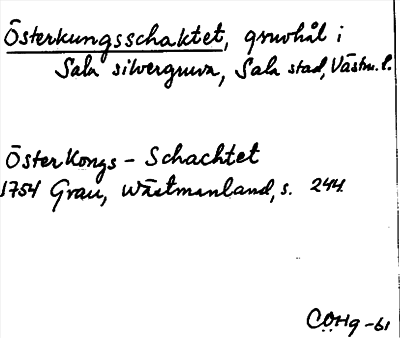 Österkungsschaktet, gruvhål i
Sala silvergruva, Sala stad, Västm. l.
Öster Kongs - Schachtet
1754 Grau, Wästmanland, s. 244.
COHg -61